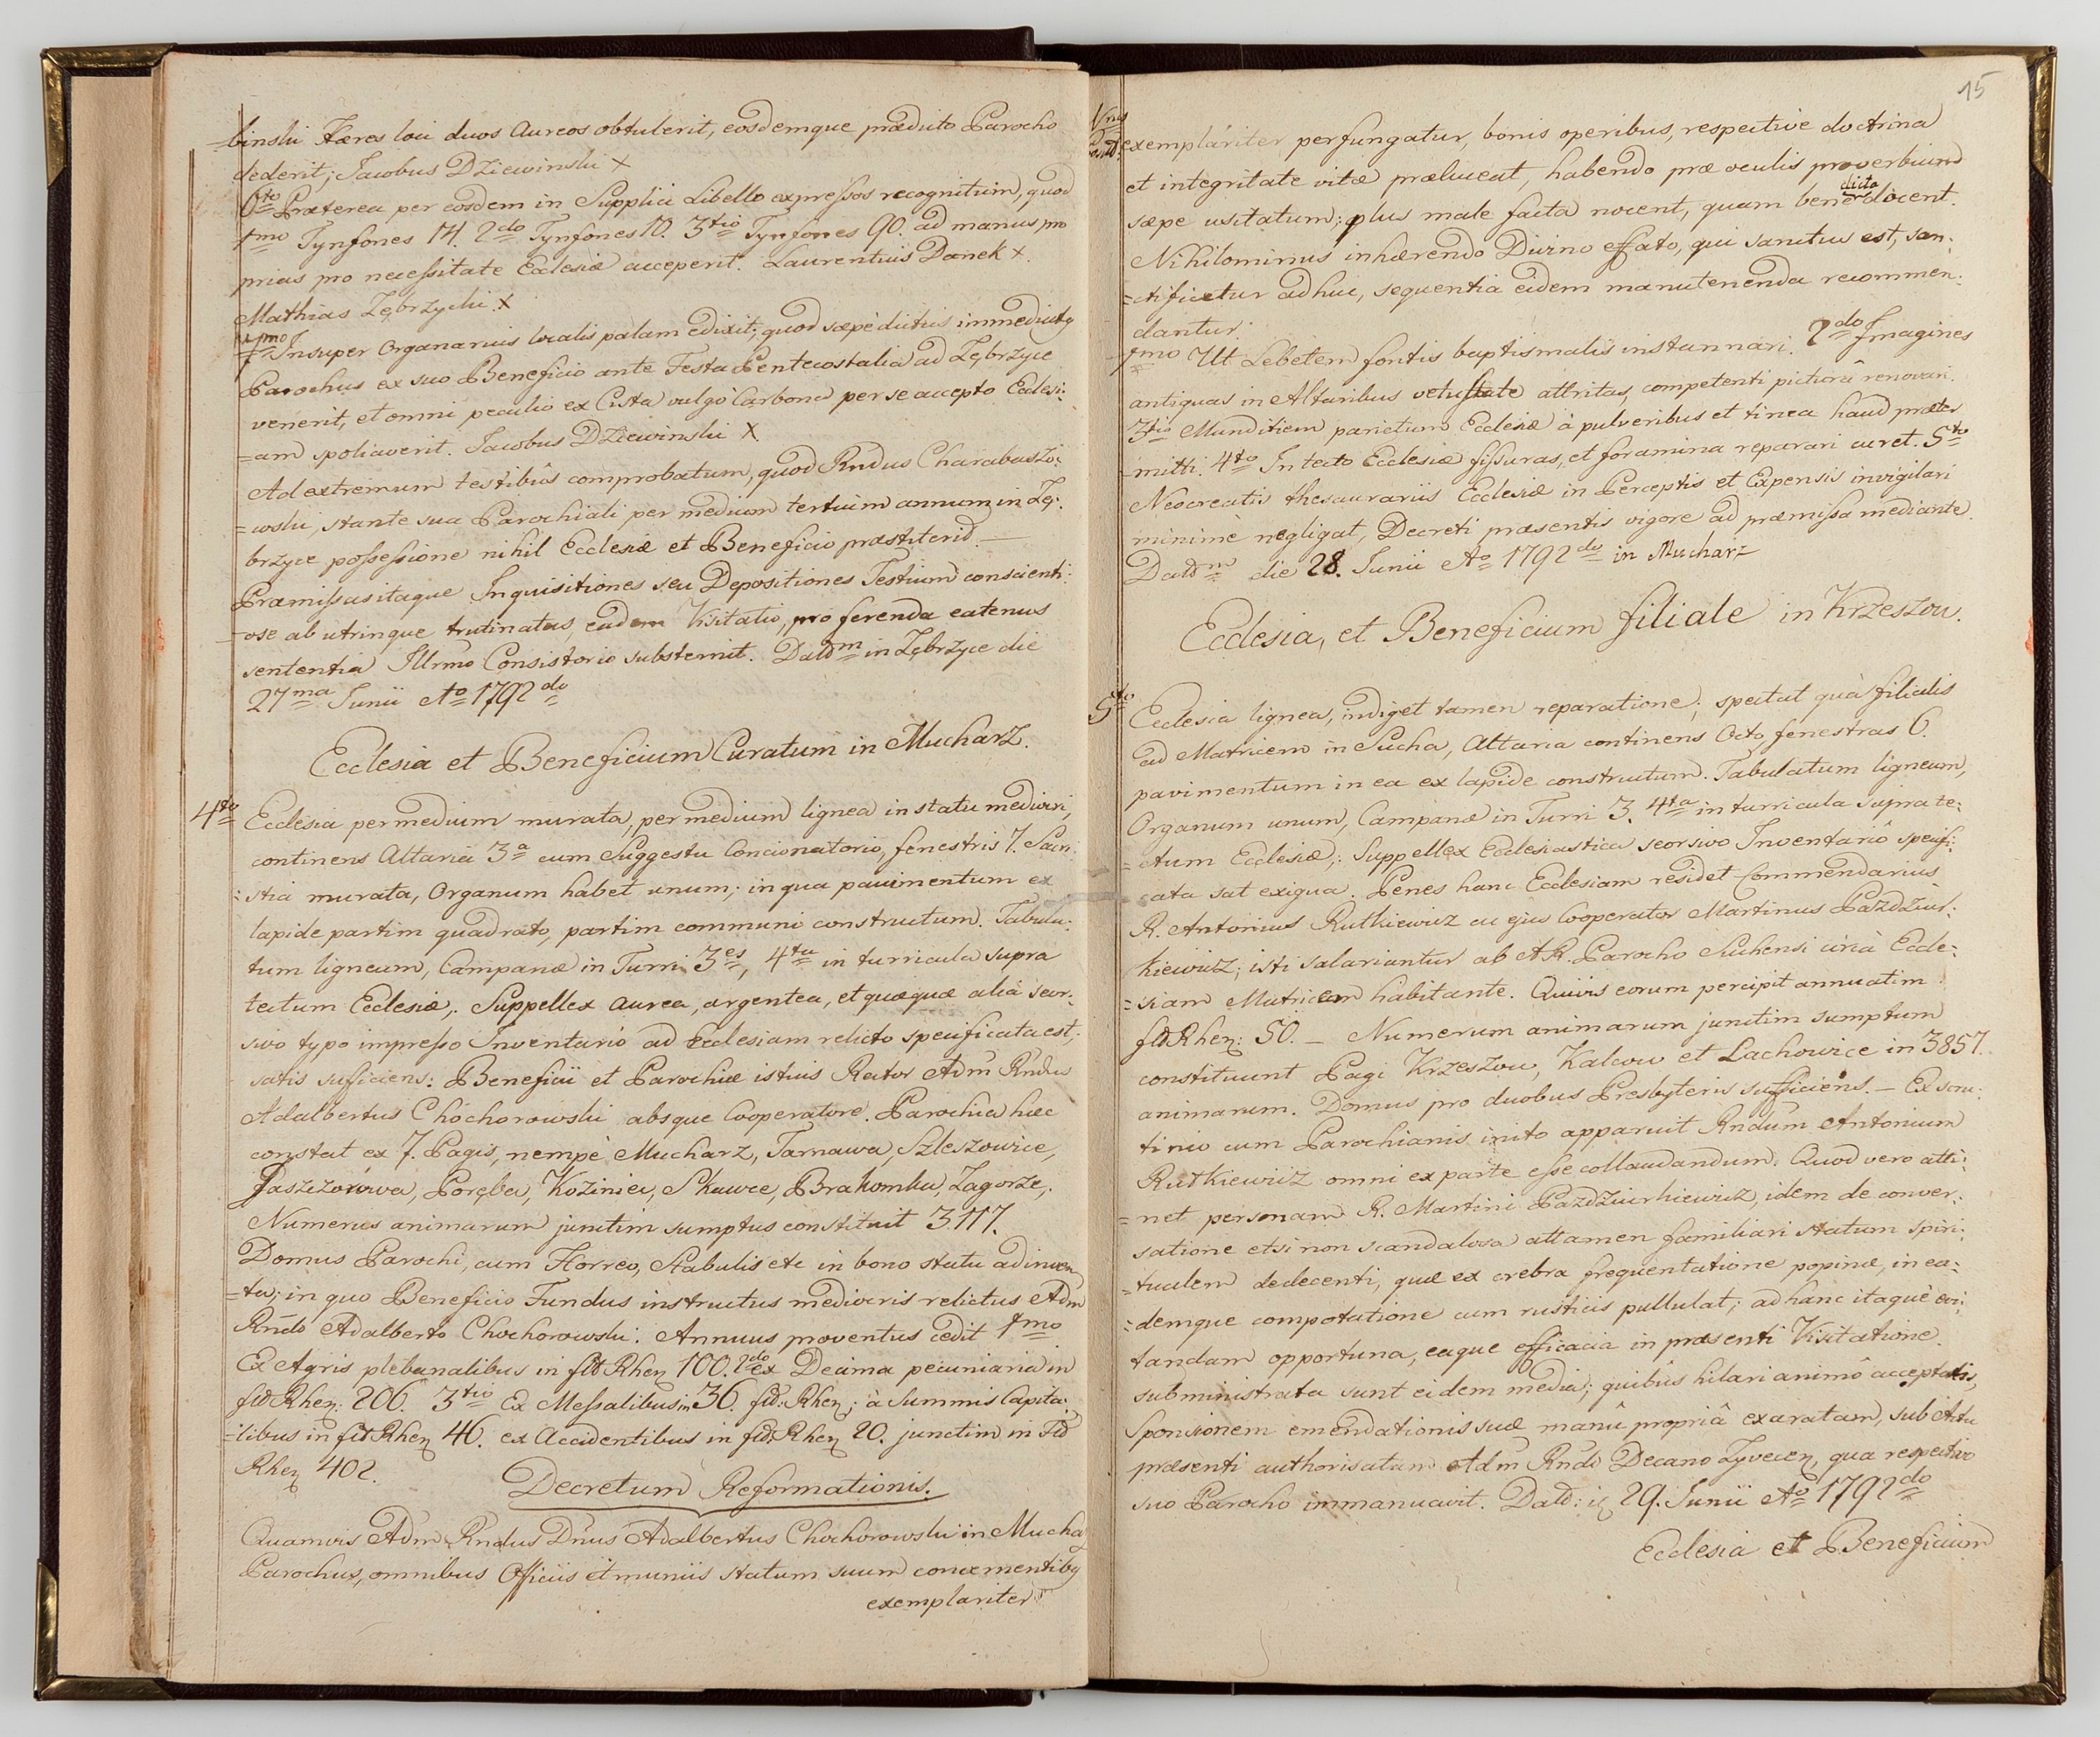 -binski Hæres loci duos aureos obtulerit, eosdemque prædicto Parocho
dederit; Jacobus Dziewinski X
6to Præterea per eosdem in Supplici Libello expressos recognitum, quod
1mo Tynfones 14. 2do Tynfones 10. 3tio Tynfones 90. ad manus pro
prias pro necessitate Ecclesiæ acceperit. Laurentius Danek X.
Mathias Zębrzycki X
7mo Insuper Organarius localis palam edixit, quod sæpe dictus immediatq
Parochus ex suo Beneficio ante Festa Pentecostalia ad Zębrzyce
venerit, et omni peculio ex Cista vulgò Carbona per se accepto Ecclesi:
=am spoliaverit. Jacobus Dziewinski X
Ad extremum testibûs comprobatum, quod Rndus Charabaszo:
=wski, stante sua Parochiali per medium tertium annum in Zę:
brzyce possessione nihil Ecclesiæ et Beneficio præstiterit.
Præmissas itaque Inquisitiones seu Depositiones Testium conscienti:
-ose ab utrinque trutinatas, eadem Visitatio, pro ferenda eatenus
sententia Illrmo Consistorio substernit. Datūm in Zębrzyce die
27ma Junii Ao 1792do
Ecclesia et Beneficium Curatum in Mucharz.
4to Ecclesia per medium murata, per medium lignea in statu mediocri,
continens Altaria 3a cum Suggestu Concionatorio, fenestris 7. Sacri:
:stia murata, Organum habet unum; in qua pavimentum ex
lapide partim quadrato, partim communi constructum. Tabula:
tum ligneum, Campanæ in Turri 3es, 4ta in turricula supra
tectum Ecclesiæ. Suppellex aurea, argentea, et quæquæ alia seor:
sivo typo impresso Inventario ad Ecclesiam relicto specificata est,
satis suficiens: Beneficii et Parochiæ istius Rector Adm Rndus
Adalbertus Chochorowski absque Cooperatore. Parochia hæc
constat ex 7. Pagis, nempè Mucharz, Tarnawa, Szleszowice,
Jaszczorowa, Poręba, Koziniec, Skawce, Brakomba, Zagorze,.
Numerus animarum junctim sumptus constituit 3117.
Domus Parochi, cum Horreo, Stabulis etc in bono statu adinven
=ta; in quo Beneficio Fundus instructus mediocris relictus Adm
Rndo Adalberto Chochorowski. Annuus proventus cedit 1mo
Ex Agris plebanalibus in flδ Rhen 100. 2do ex Decima pecuniaria in
flδ Rhen: 206. 3tio Ex Messalibus in 36. flδ: Rhen; à Summis Capita:
-libus in flδ Rhen 46. ex Accidentibus in flδ Rhen 20. junctim in Flδ
Rhen 402.
Decretum Reformationis.
Quamvis Adm Rndus Dnus Adalbertus Chochorowski in Mucha
Parochus, omnibus Officiis et muniis statum suum concernentibq
exemplariter
15
exemplariter perfungatur, bonis operibus, respective doctrina
et integritate vitæ præluceat, habendo præ oculis proverbium
sæpe usitatum; plus male facta nocent, quam bene dicta docent.
Nihilominus inhærendo Divino effato, qui sanctus est, san:
=ctificetur adhuc, sequentia eidem manutenenda recommen:
dantur.
1mo Ut Lebetem fontis baptismalis instannari. 2do Imagines
antiquas in Altaribus vetustate attritas, competenti picturâ renovari.
3tio Munditiem parietum Ecclesiæ à pulveribus et tinea haud præter
-mitti. 4to In tecto Ecclesiæ fissuras, et foramina reparari curet. 5to
Neocreatis thesaurariis Ecclesiæ in Perceptis et Expensis invigilari
minime negligat, Decreti præsentis vigore ad præmissa mediante.
Datūm die 28. Junii Ao 1792do in Mucharz
Ecclesia, et Beneficium filiale in Krzeszow.
5to Ecclesia lignea, indiget tamen reparatione; spectat quà filialis
ad Matricem in Sucha, Altaria continens Octo, fenestras 6.
pavimentum in ea ex lapide constructum. Tabulatum ligneum,
Organum unum, Campanæ in Turri 3. 4ta in turricula supra te:
=ctum Ecclesiæ; Suppellex Ecclesiastica seorsivo Inventariô specifi:
cata sat exigua. Penes hanc Ecclesiam residet Commendarius
R. Antonius Rutkiewicz ac ejus Cooperator Martinus Pazdziur:
kiewicz; isti salariantur ab AR. Parocho Suchensi circà Eccle:
=siam Matricem habitante. Quivis eorum percipit annuatim
flδ Rhen: 50. — Numerum animarum junctim sumptum
constituunt Pagi Krzeszow, Kalcow et Lachowice in 3857.
animarum. Domus pro duobus Presbyteris sufficiens. — Ex scru:
tinio cum Parochianis inito apparuit Rndum Antonium
Rutkiewicz omni ex parte esse collaudandum. Quod vero atti:
=net personam R. Martini Pazdziurkiewicz, idem de conver:
satione etsi non scandalosa attamen familiari statum spiri:
-tualem dedecenti, quæ ex crebra frequentatione popinæ, in ea:
=demque compotatione cum rusticis pullulat; ad hanc itaquè evi:
tandam opportuna, eaque efficacia in præsenti Visitatione
subministrata sunt eidem media; quibûs hilari animô acceptatis,
Sponsionem emendationis suæ manû propriâ exaratam, sub Actu
præsenti authorisatam Adm Rndo Decano Zyvecen, qua respective
suo Parocho immanuavit. Datδ: 29. Junii Ao 1792do
Ecclesia et Beneficium